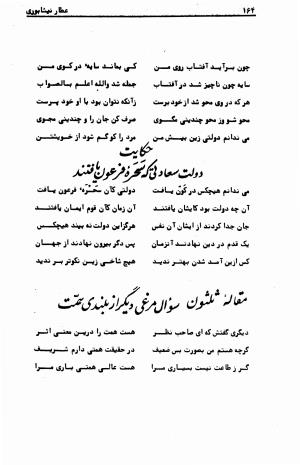 ۱۶۴ عطار نیشابوری
چون برآید آفتاب روی من کی بماند سایهٔ در کوی من
سایه چون ناچیز شد در آفتاب جمله شد والله اعلم بالصواب
هر که در وی محو شد از خود برست زآنکه نتوان بود با او خود پرست
محو شو وز محو چندینی مگوی صرف کن جان را و چندینی مجوی
می ندانم دولتی زین بیش من مرد را کو گم شود از خویشتن
حکایت
دولت سعادتی که سحرهٔ فرعون یافتند
می ندانم هیچکس در کون یافت دولتی کان سحرهٔ فرعون یافت
آن چه دولت بود کایشان یافتند آن زمان کآن قوم ایمان یافتند
جان جدا کردند از ایشان آن نفس هرگز این دولت نه بیند هیچکس
یک قدم در دین نهادند آنزمان پس دگر بیرون نهادند از جهان
کس ازین آمد شدن بهتر ندید هیچ شاخی زین نکوتر بر ندید
مقالهٔ ثلثون سؤال مرغی دیگر از بلندی همت
دیگری گفتش که ای صاحب نظر هست همت را درین معنی اثر
گرچه هستم من بصورت بس ضعیف در حقیقت همتی دارم شریف
گر ز طاعت نیست بسیاری مرا هست عالی همتی باری مرا